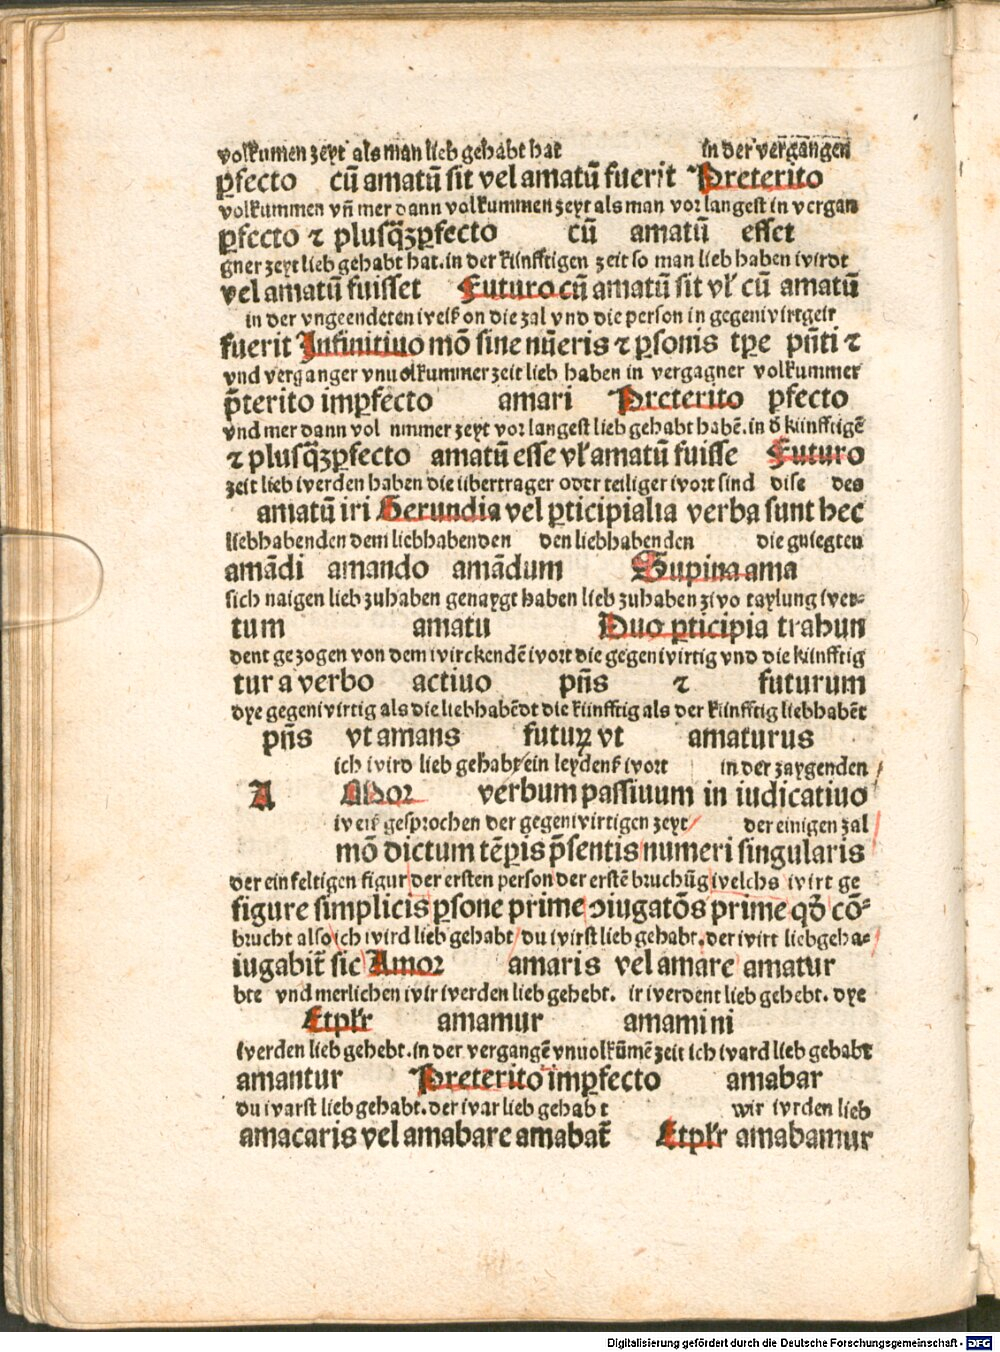 volkumen zeyt als man lieb gehabt hat in der vergangen
ꝑfecto cū amatū sit vel amatū fuerit Preterito
volkummen vñ mer dann volkummen zeyt als man vor langest in vergan
ꝑfecto ⁊ plusq̄ꝫꝑfecto cū amatū esset
gner zeyt lieb gehabt hat. in der künfftigen zeit so man lieb haben wirdt
vel amatū fuisset Futuro cū amatū sit vl̕ cū amatū
in der vngeendeten weiß on die zal vnd die person in gegenwirtgeit
fuerit Infinitiuo mō sine nūeris ⁊ ꝑsonis tꝑe pñti ⁊
vnd verganger vnuolkummer zeit lieb haben in vergagner volkummer
p̄terito imꝑfecto amari Preterito ꝑfecto
vnd mer dann vol nmmer zeyt vor langest lieb gehabt habē. in d̄ künfftigē
⁊ plusq̄ꝫꝑfecto amatū esse vl̕ amatū fuisse Futuro
zeit lieb werden haben die übertrager oder teiliger wort sind dise des
amatū iri Gerundia vel ꝑticipialia verba sunt hec
liebhabenden dem liebhabenden den liebhabenden die gniegten
amādi amando amādum Supina ama
sich naigen lieb zuhaben genaygt haben lieb zuhaben zwo taylung wer⸗
tum amatu Duo ꝑticipia trahun
dent gezogen von dem wirckendē wort die gegenwirtig vnd die künfftig
tur a verbo actiuo pñs ⁊ futurum
dye gegenwirtig als die liebhabēdt die künfftig als der künfftig liebhabēt
pñs vt amans futuꝝ vt amaturus
ich wird lieb gehabt ein leydenß wort in der zaygenden
A Mor verbum passiuum in iudicatiuo
weiß gesprochen der gegenwirtigen zeyt der einigen zal
mō dictum tēꝑis p̄sentis numeri singularis
der einfeltigen figur der ersten person der erstē bruchūg welchs wirt ge
figure simplicis ꝑsone prime ↄiugatōs prime qd̄ cō⸗
brucht also ich wird lieb gehabt du wirst lieb gehabt. der wirt lieb geha⸗
iugabit̄ sic Amor amaris vel amare amatur
bte vnd merlichen wir werden lieb gehebt. ir werdent lieb gehebt. dye
Et pl̕r amamur amamini
werden lieb gehebt. in der vergangē vnuolkūmē zeit ich ward lieb gehabt
amantur Preterito imꝑfecto amabar
du warst lieb gehabt. der war lieb gehabt wir wrden lieb
amacaris vel amabare amabat̄ Et pl̕r amabamur
Digitalisierung gefördert durch die Deutsche Forschungsgemeinschaft - DFG